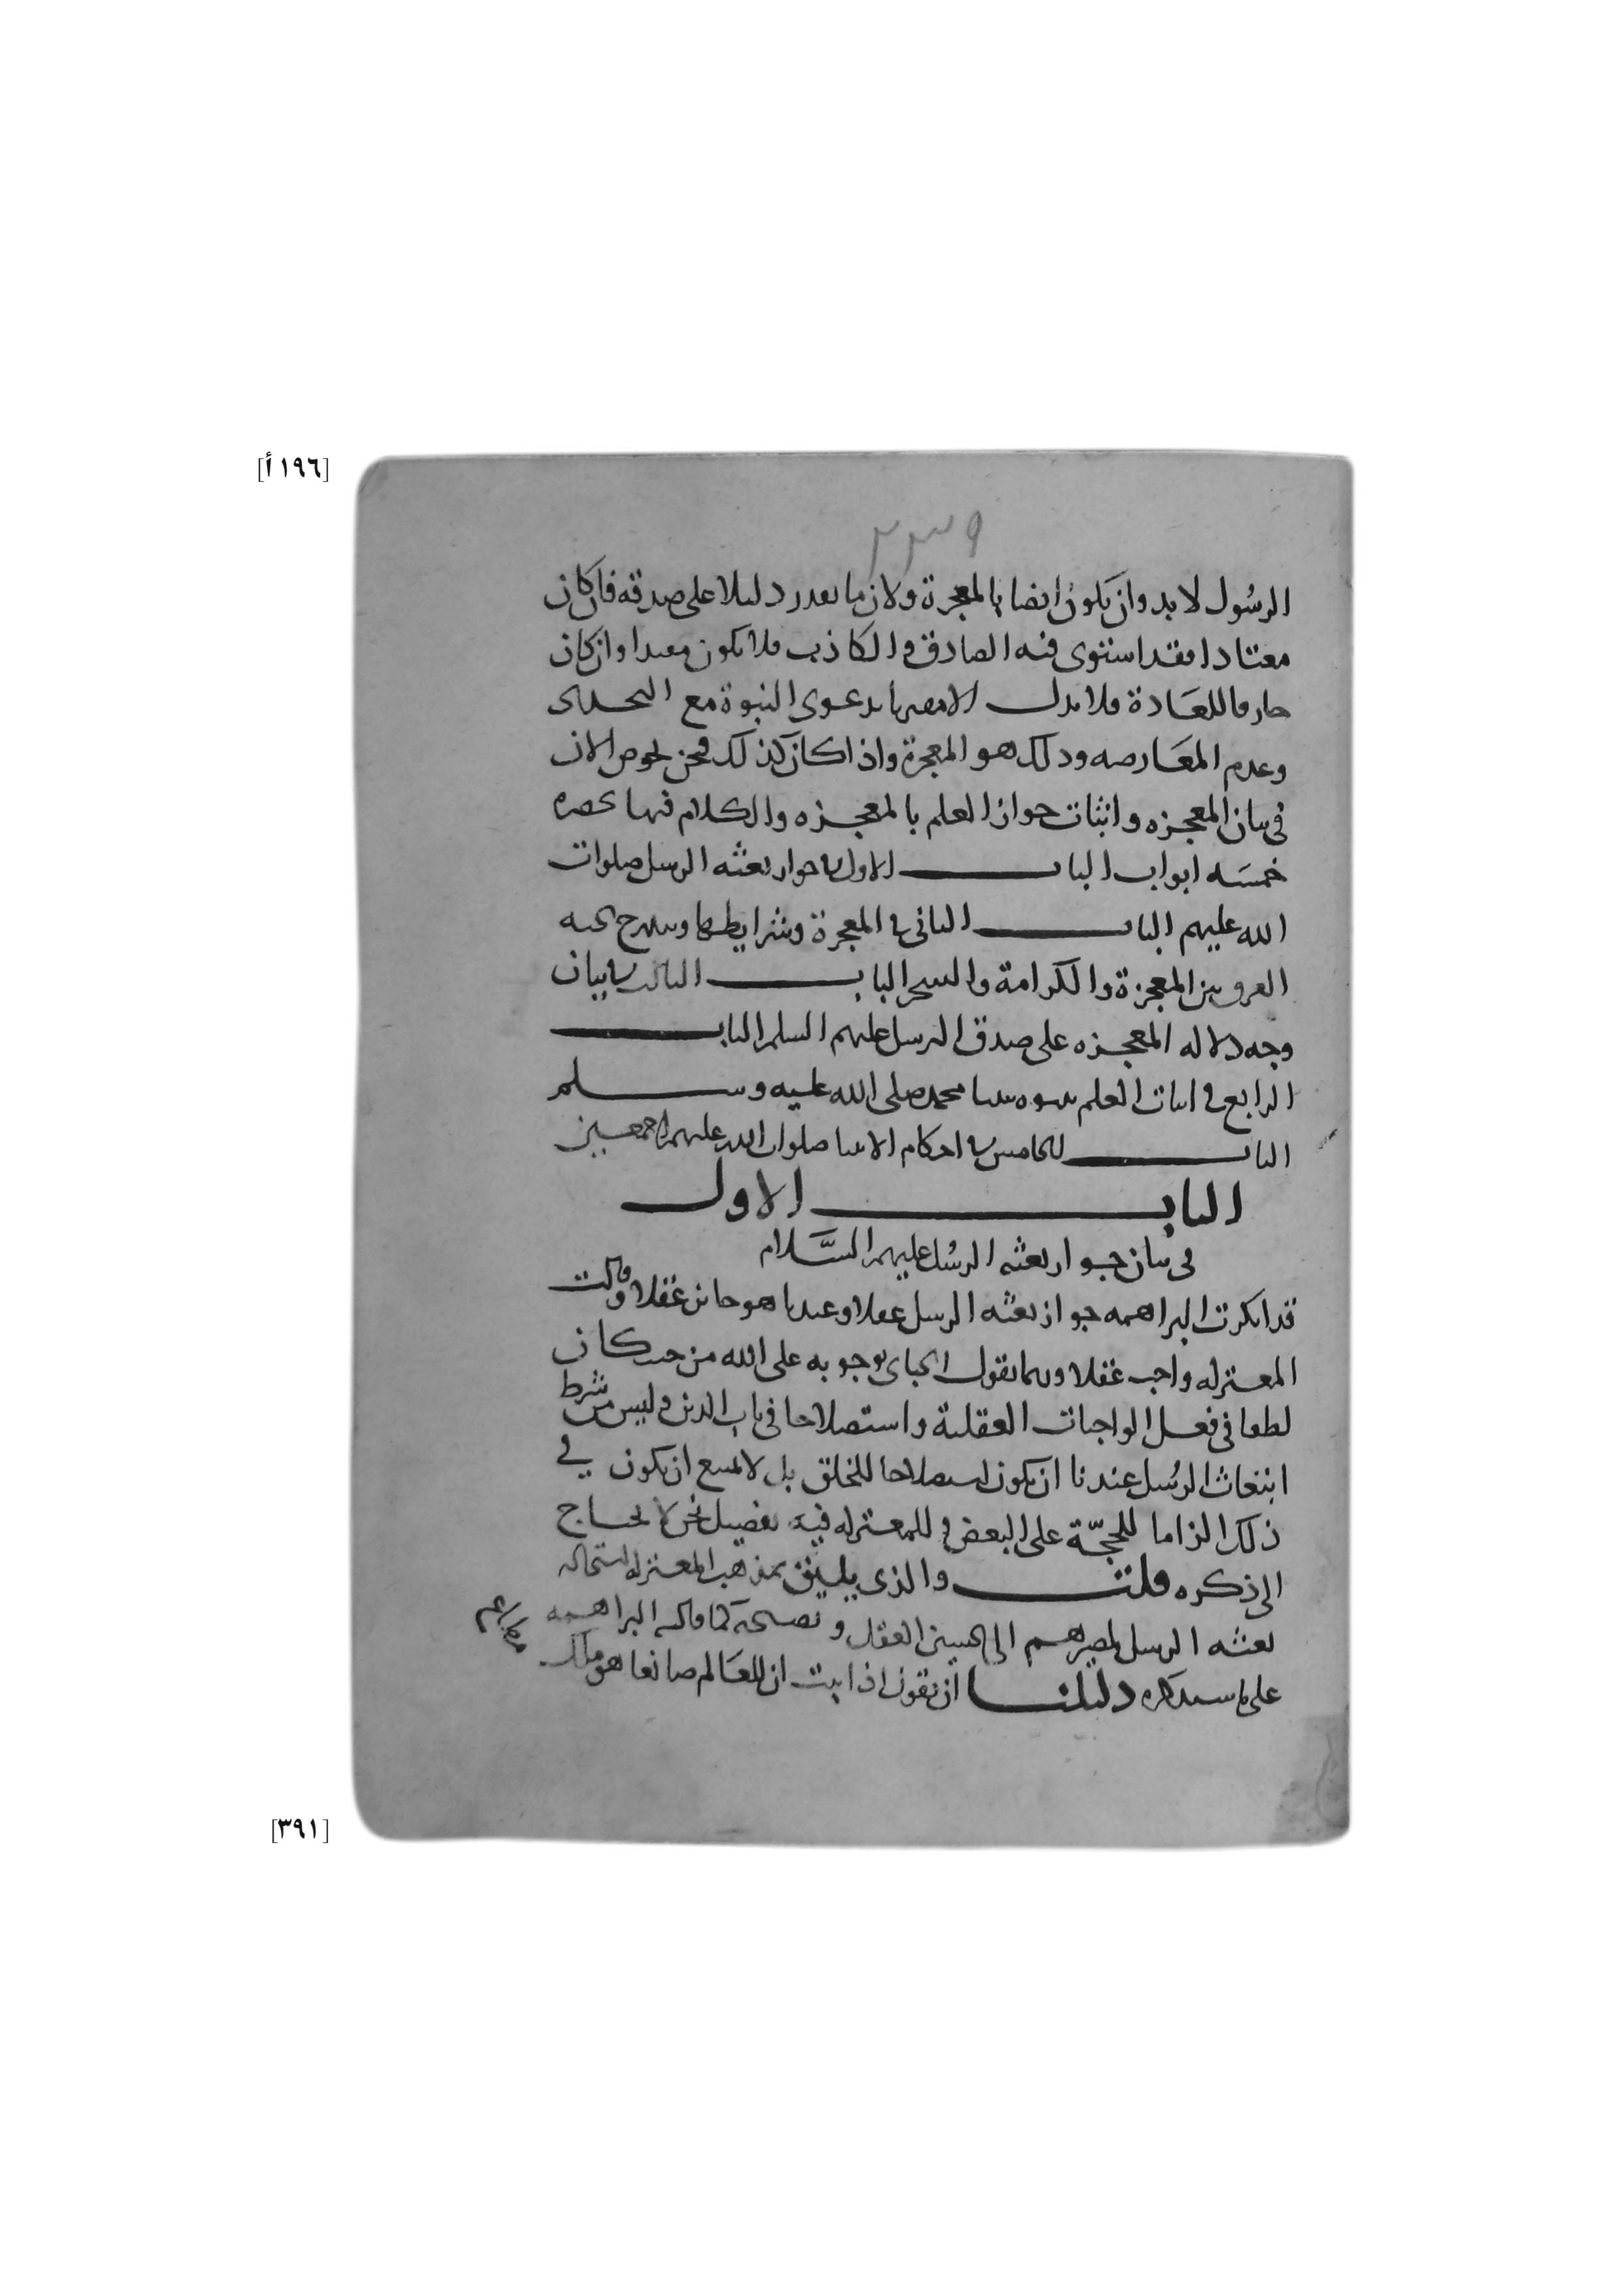 [١٩٦ أ]
٢٣٩
الرسول لا بد وان يكون ايضا بالمعجزة ولان ما يقدر دليلا على صدقه فان كان
معتادا فقد استوى فيه الصادق والكاذب فلا يكون مفيدا وان كان
خارقا للعادة فلا يدل الا مقترنا بدعوى النبوة مع التحدى
وعدم المعارضه وذلك هو المعجزة واذا كان كذلك فنحن نخوض الان
فى بيان المعجزه واثبات جواز العلم بالمعجزه والكلام فيها يحصره
خمسه ابواب الباب الاول فى جواز بعثه الرسل صلوات
الله عليهم الباب الثانى فى المعجزة وشرايطها ويندرج تحته
الفرق بين المعجزة والكرامة والسحر الباب الثالث فى بيان
وجه دلاله المعجزه على صدق الرسل عليهم السلم الباب
الرابع فى اثبات العلم بنبوه نبينا محمد صلى الله عليه وسلم
الباب الخامس فى احكام الانبيا صلوات الله عليهم اجمعين
الباب الاول
فى بيان جواز بعثه الرسل عليهم السلام
قد انكرت البراهمه جواز بعثه الرسل عقلا وعندنا هو جائز عقلا وقالت
المعتزله واجب عقلا وربما يقول الجبائى بوجوبه على الله من حيث كان
لطفا فى فعل الواجبات العقلية واستصلاحا فى باب الدين وليس من شرط
ابتعاث الرسل عندنا ان يكون استصلاحا للخلق بل لا يمتنع ان يكون في
ذلك الزاما للحجة على البعض وللمعتزله فيه تفصيل نحن لا نحتاج
الى ذكره قلت والذى يليق بمذهب المعتزله استحاله
بعثه الرسل لمصيرهم الى تحسين العقل و كما قاله البراهمه
على ما سنذكره دليلنا ان نقول اذا ثبت ان للعالم صانعا هو ملك
[٣٩١]